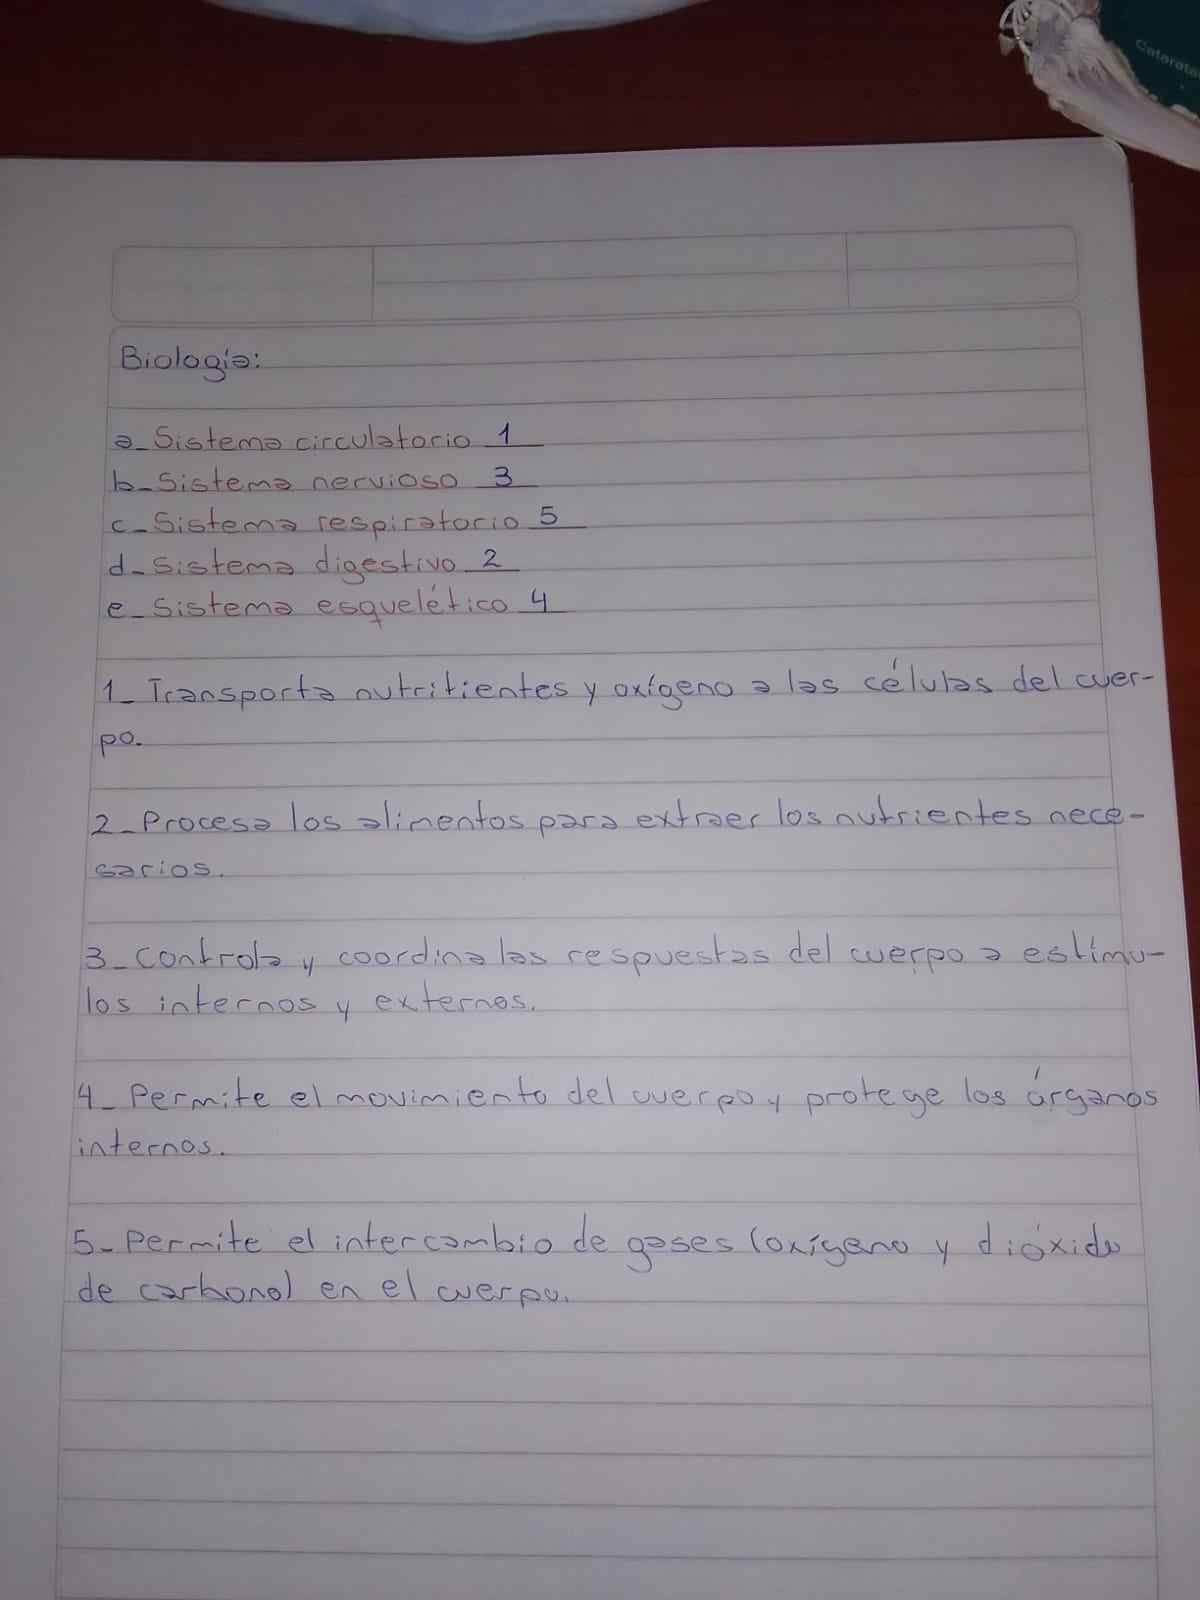 Catarata
Biología:
a_ Sistema circulatorio 1
b_ Sistema nervioso 3
c_ Sistema respiratorio 5
d_ Sistema digestivo 2
e_ Sistema esquelético 4
1_ Transporta nutritientes y oxígeno a las células del cuer-
po.
2_ Procesa los alimentos para extraer los nutrientes nece-
sarios.
3_ Controla y coordina las respuestas del cuerpo a estímu-
los internos y externos.
4_ Permite el movimiento del cuerpo y protege los órganos
internos.
5_ Permite el intercambio de gases (oxígeno y dióxido
de carbono) en el cuerpo.